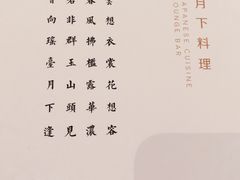 月下料理
JAPANESE CUISINE
LOUNGE BAR
雲想衣裳花想容
春風拂檻露華濃
若非群玉山頭見
會向瑤臺月下逢